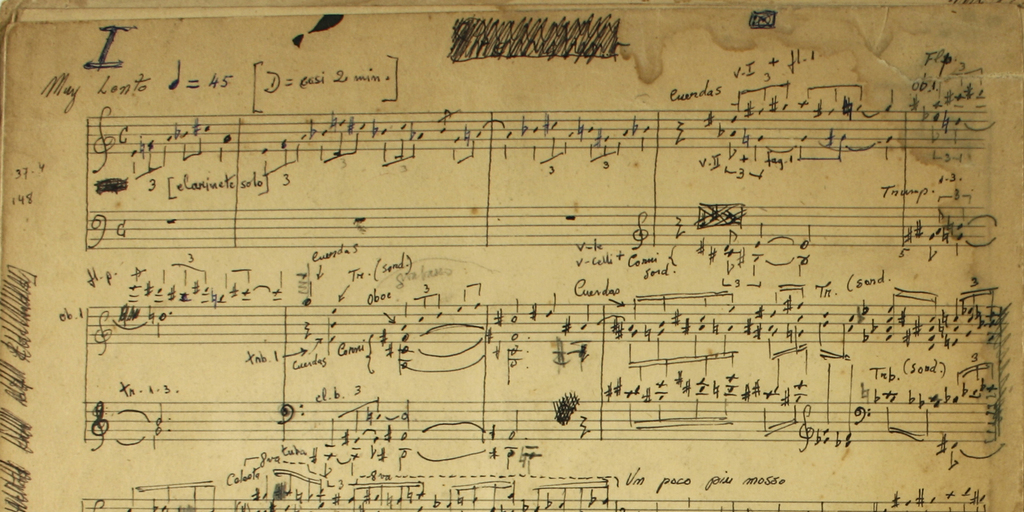 I
Muy Lento ♩ = 45 [D = cosi 2 min.]
Cuerdas v.I + fl.1
3
Flp.
ob.1.
3
37.4
148
3 [clarinete solo] 3
3
3
v.II + fag.1
3
3
Trump. 1.3.
3
v-le
v-celli + Corni
sord.
3
fl.p.
3
Cuerdas
Tr. (sord.)
Oboe
3
Cuerdas
Tr. (sord.
3
ob.1
trb.1
Cuerdas
Corni
tr. 1.3.
cl.b. 3
Trb. (sord.)
3
Celesta
8va
3
Un poco più mosso